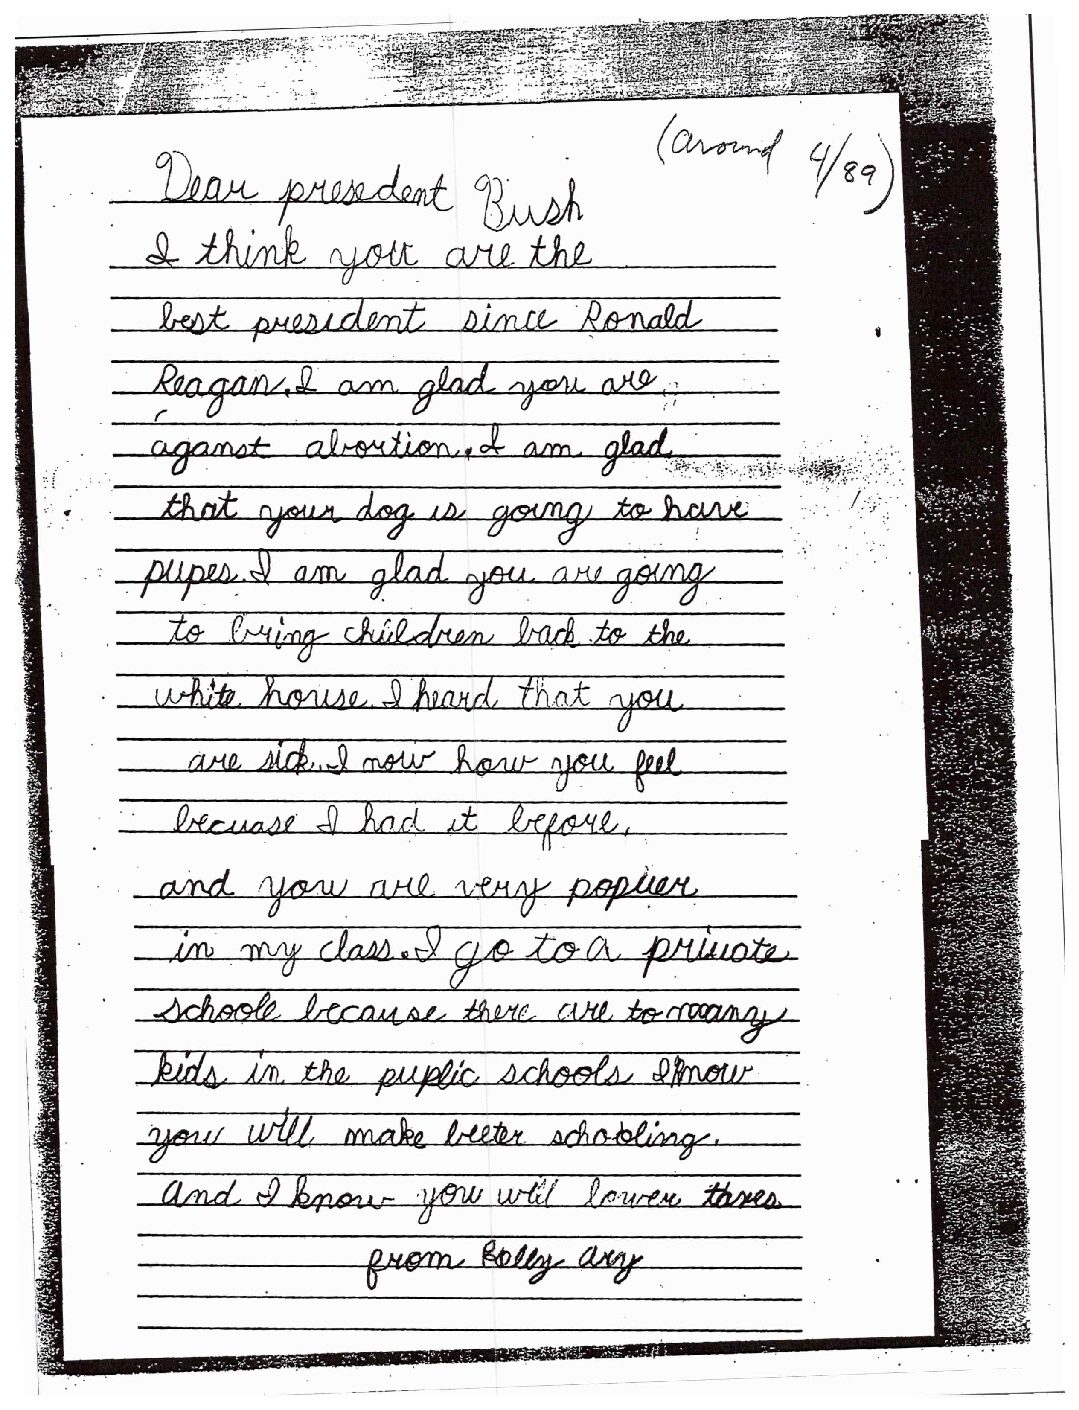 (around 4/89)
Dear presedent Bush
I think you are the
best president since Ronald
Reagan. I am glad you are
aganst abortion. I am glad
that your dog is going to have
pupes. I am glad you are going
to bring children back to the
white house. I heard that you
are sick. I now how you feel
becuase I had it before.
and you are very popuer
in my class. I go to a private
schoole because there are to many
kids in the puplic schools I know
you will make beeter schooling.
and I know you will lower taxes
from